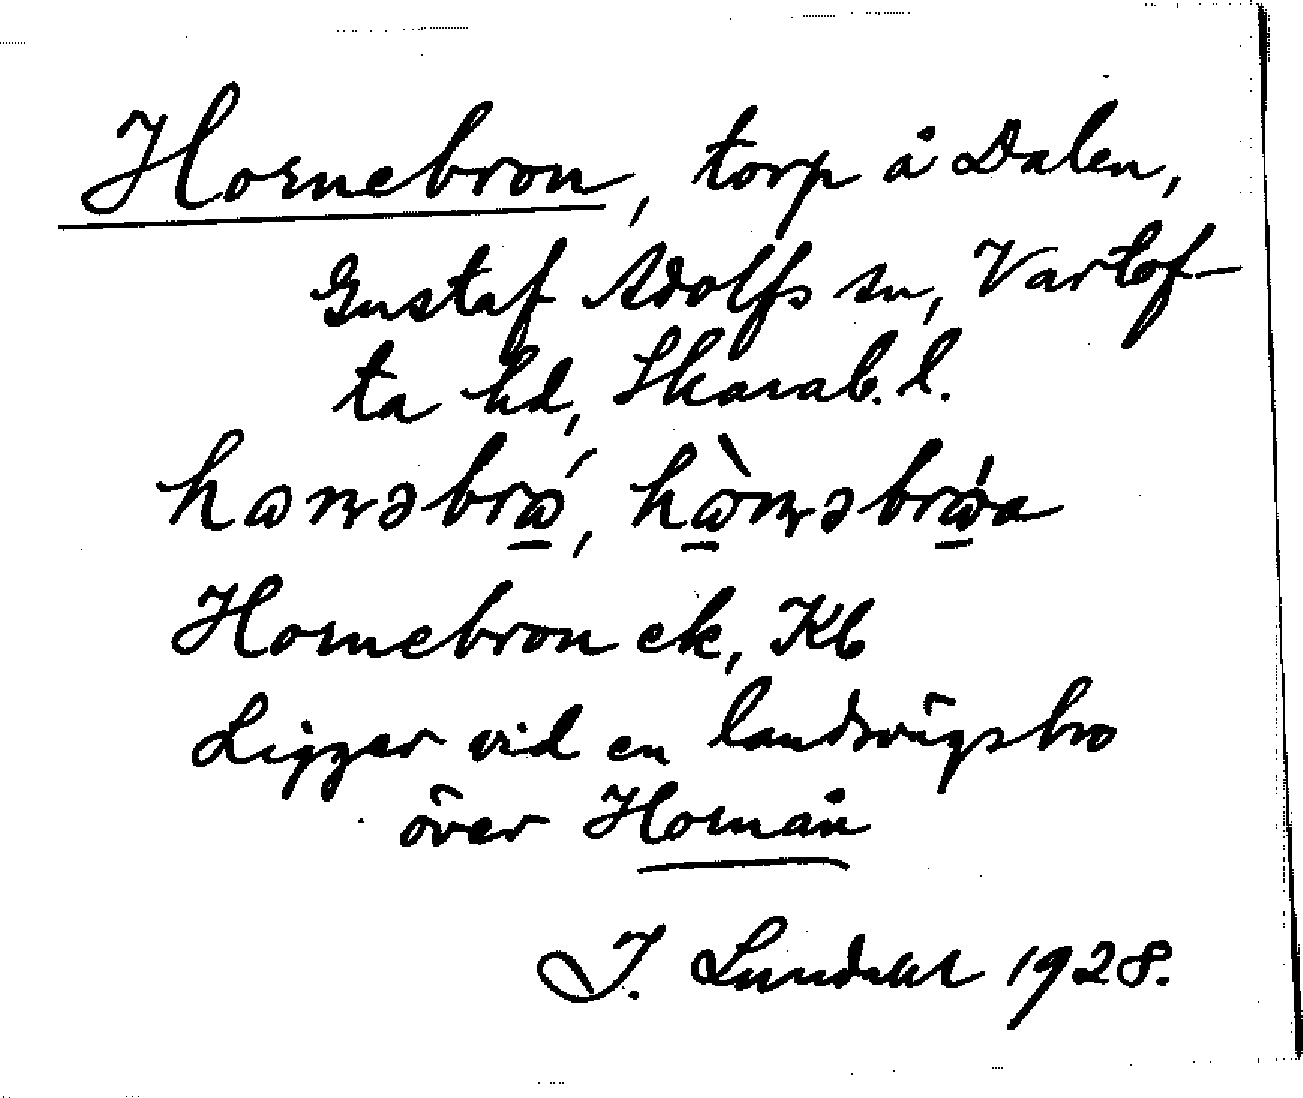 Hornebron, torp å Dalen,
Gustaf Adolfs sn, Vartof-
ta hd, Skarab. l.
Hornebron ek, Kb
Ligger vid en landsvägsbro
över Hornån
I. Lundahl 1928.